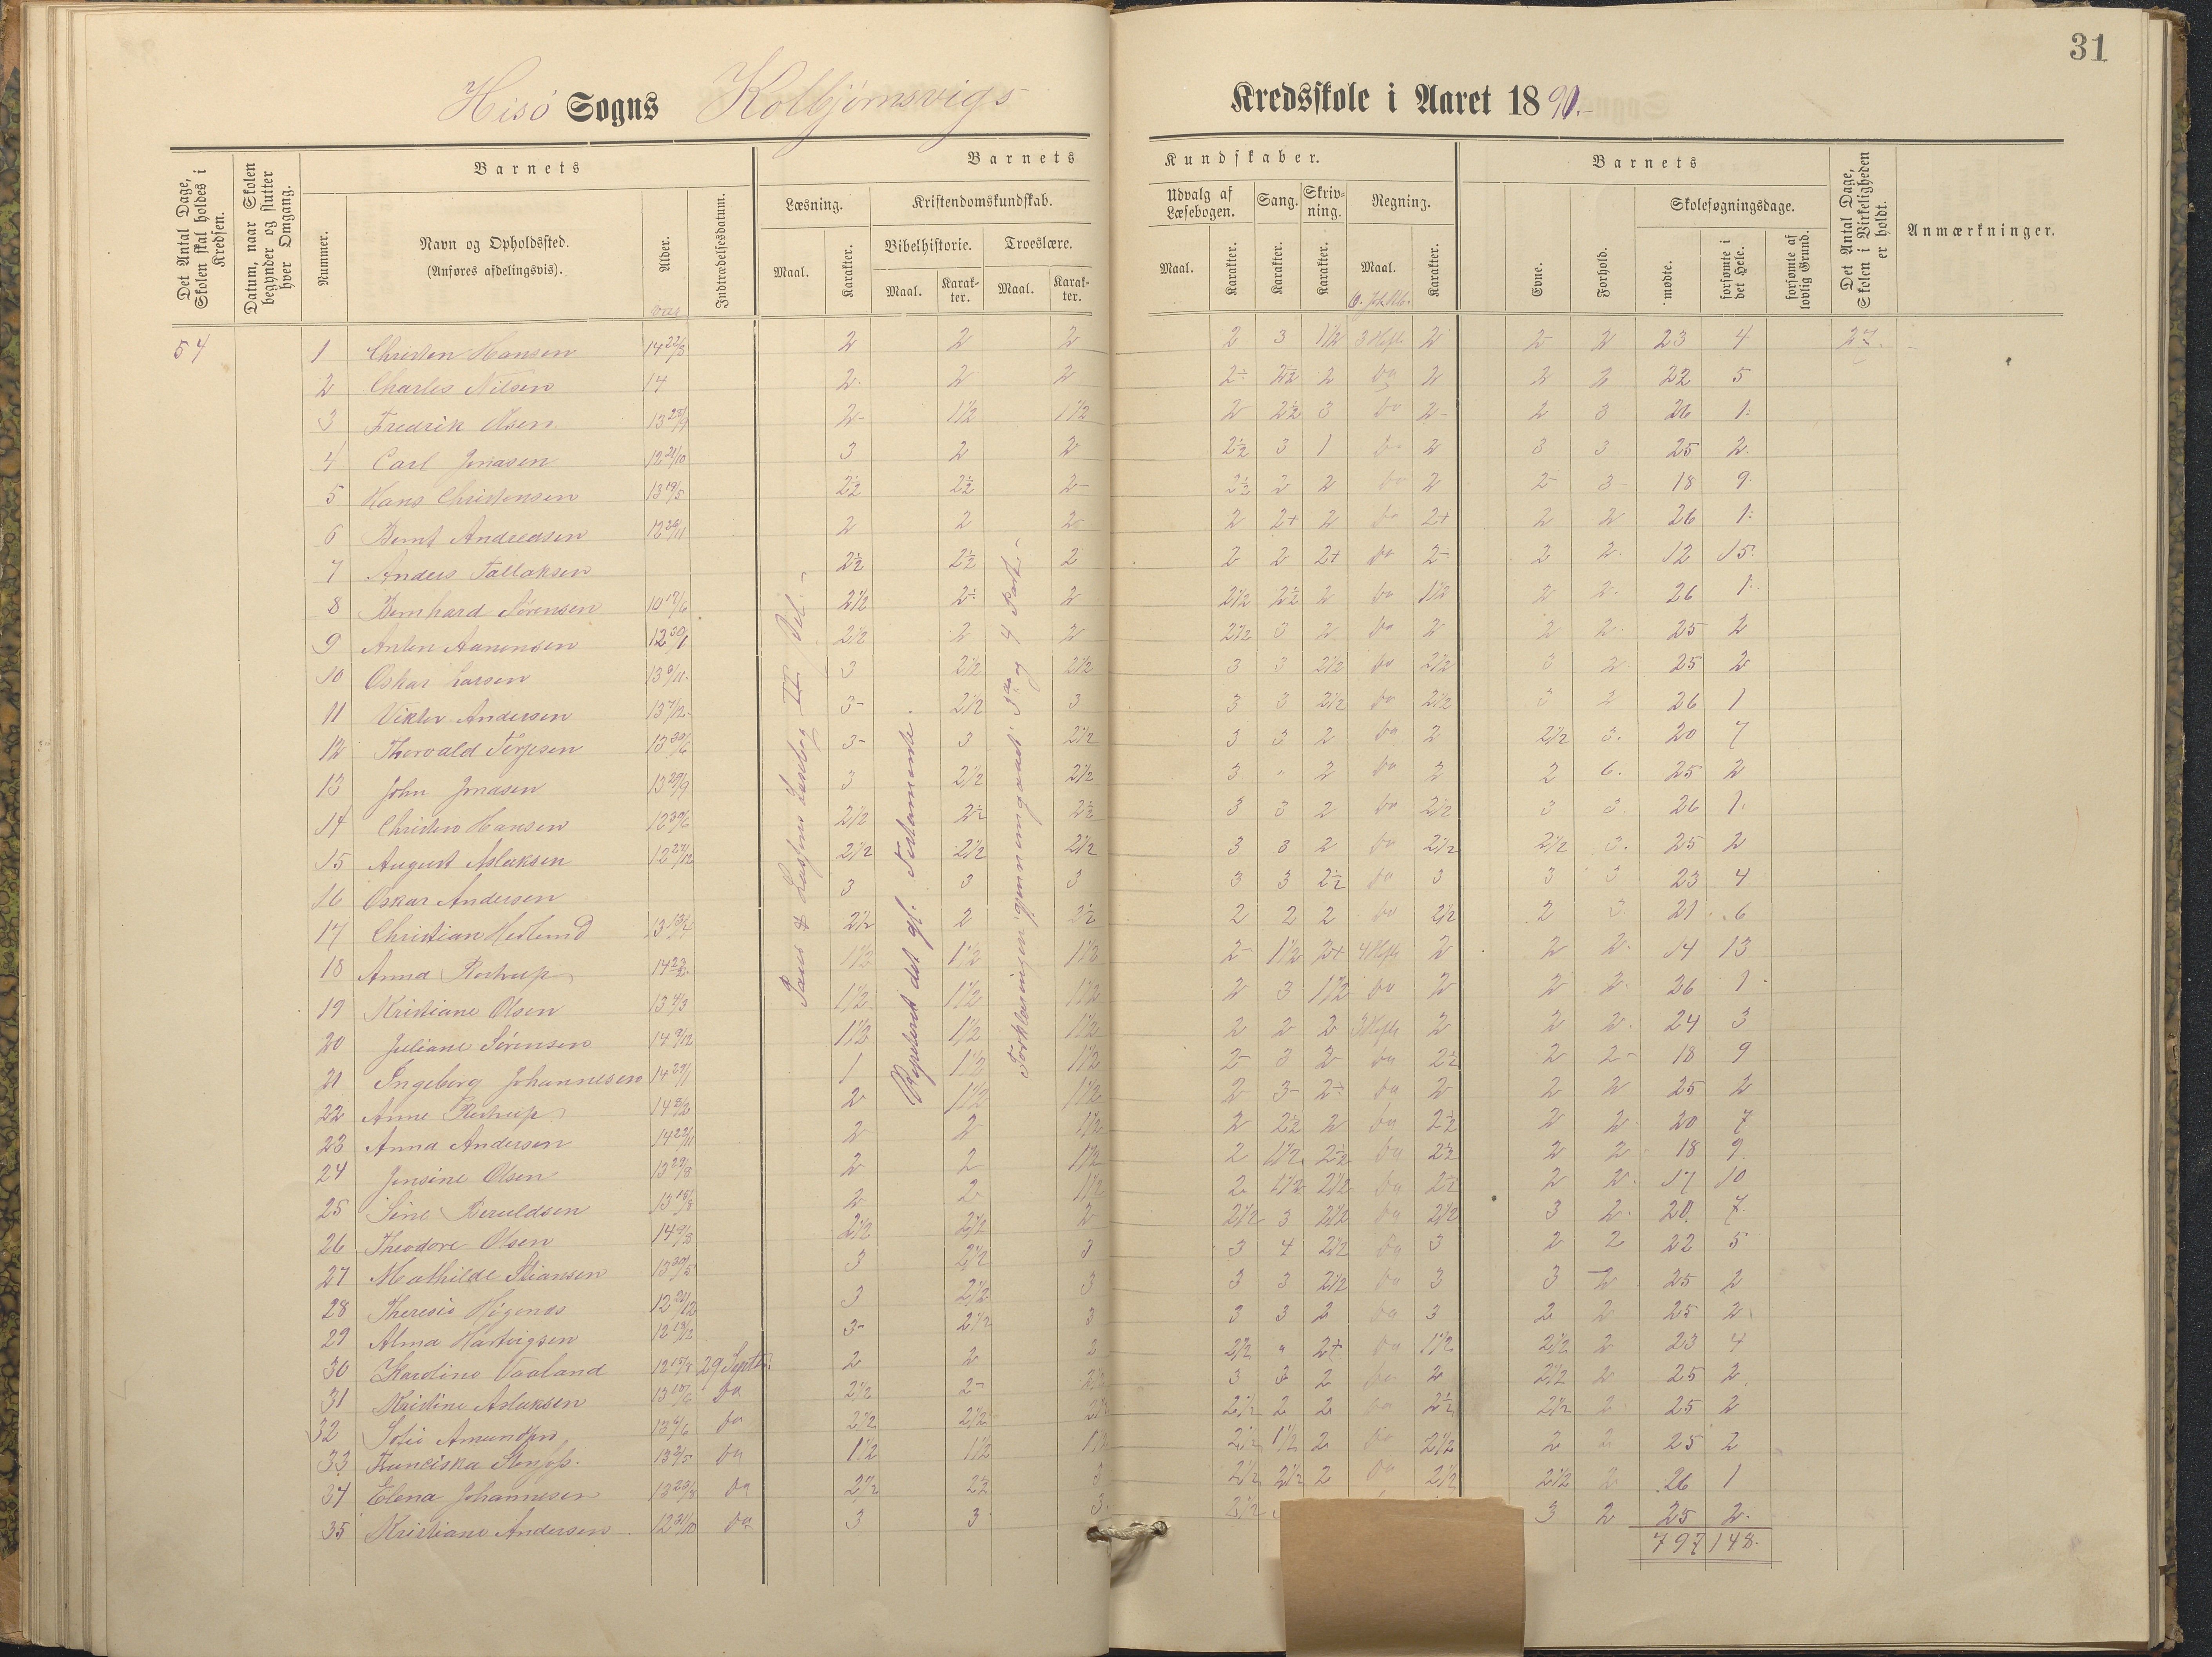 31
Hisö Sogns Kolbjørnsvigs Kredsskole i Aaret 1890.-
Det Antal Dage, Skolen skal holdes i Kredsen.
Datum, naar Skolen begynder og slutter hver Omgang.
Barnets
Nummer.
Navn og Opholdssted.
(Anføres afdelingsvis).
Alder.
Indtrædelsesdatum.
Barnets Kundskaber.
Læsning.
Kristendomskundskab.
Bibelhistorie.
Troeslære.
Maal.
Karakter.
Maal.
Karakter.
Maal.
Karakter.
Udvalg af Læsebogen.
Sang.
Skrivning.
Regning.
Maal.
Karakter.
Karakter.
Karakter.
Maal.
Karakter.
Barnets
Evne.
Forhold.
Skolesøgningsdage.
mødte.
forsømte i det Hele.
forsømte af lovlig Grund.
Det Antal Dage, Skolen i Virkeligheden er holdt.
Anmærkninger.
54
1 Christen Hansen 14 2 2 2 2 3 1½ 3 Hefte 2 2 2 23 4 27.
2 Charles Nilsen 14 2 2 2 2 2 da 2 2 2 22 5
3 Fredrik Olsen 2- 1½ 1½ 2 2½ 3 da 2- 2 3 26 1
4 Carl Jonasen 12 21/10 3 2 2 2½ 3 1 da 2 3 3 25 2
5 Hans Christensen 13 19/5 2½ 2½ 2- 2½ 2 2 da 2 2- 3- 18 9
6 Bernt Andreasen 2 2 2- 2 2+ 2 da 2+ 2 2 26 1
7 Anders Tallaksen 2½ 2½ 2 2 2 2+ da 2- 2 2 12 15
8 Bernhard Sörensen 10 17/6 2½ 2 2½ 2½ 2 da 1½ 2 2 26 1
9 Anton Aanonsen 2½ 2 2 2½ 3 2 da 2 2 2 25 2
10 Oskar Larsen 3 2½ 2½ 3 3 2½ da 2½ 3 2 25 2
11 Viktor Andersen 13 7/12 3- 2½ 3 3 3 2½ da 2½ 3 2 26 1
12 Thorvald Terjesen 13 30/6 3- 3 2½ 3 3 2 da 2 2½ 3 20 7
13 John Jonasen 13 29/9 3 2½ 2½ 3 " 2 da 2 2 6 25 2
14 Christen Hansen 2½ 2½ 2½ 3 3 2 da 2½ 3 3 26 1
15 August Aslaksen 2½ 2½ 2½ 3 3 2 da 2½ 2½ 3 25 2
16 Oskar Andersen 3 3 3 3 3 2½ da 3 3 3 23 4
17 Christian Hedlund 2½ 2 2½ 2 2 2 da 2½ 2 3 21 6
18 Anna Rostrup 1½ 1½ 1½ 2- 1½ 2+ 4 Hefte 2 2 2 14 13
19 Kristiane Olsen 13 4/3 1½ 1½ 1½ 2 3 1½ da 2 2 2 26 1
20 Juliane Sörensen 14 9/12 1½ 1½ 1½ 2 2 2 3 Hefte 2 2 2 24 3
21 Ingeborg Johannesen 1 1½ 1½ 2- 3 2 da 2½ 2 2- 18 9
22 Anne Rostrup 2 1½ 1½ 2 3- da 2 2 2 25 2
23 Anna Andersen 2 2 1½ 2 2½ 2 da 2½ 2 2 20 7
24 Jensine Olsen 13 29/8 2 2 1½ 2 1½ 2½ da 2½ 2 2 18 9
25 Sine Beruldsen 13 15/8 2 2 1½ 2 1½ 2½ da 2½ 2 2 17 10
26 Theodore Olsen 2½ 2½ 2 2½ 3 2½ da 2½ 3 2 20 7
27 Mathilde Stiansen 3 2½ 3 3 4 2½ da 3 2 2 22 5
28 Theresie 3 2½ 3 3 3 2½ da 3 3 2 25 2
29 Alma Hartvigsen 3- 2½ 3 3 3 2 da 3 2 2 25 2
30 Karoline Vaaland 29 Septbr. 2 2 2 2½ " 2+ da 1½ 2½ 2 23 4
31 Kristine Aslaksen da 2½ 2- 2½ 3 3 2 da 2 2½ 2 25 2
32 Sofie Amundsen 13 6/6 da 2½ 2½ 2½ 2½ 2 2 da 2½ 2½ 2 25 2
33 da 1½ 1½ 1½ 2½ 1½ 2 da 2½ 2 2 25 2
34 Elena Johannesen 13 23/8 da 2½ 2½ 3 2½ 2½ 2 da 2½ 2½ 2 26 1
35 Kristiane Andersen 12 31/10 da 3 3 3 2½ 3 2 25 2
797 148.
Paus & Lassens Læsebog II Del.
Repeteret det gl. Testamente.
Forklaringen gjennemgaaet: 3die og 4 Part.